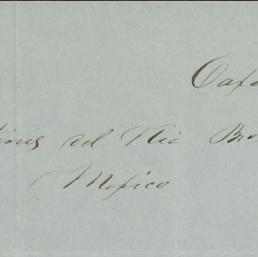 Oaxa
tines del Rio Bra
Mexico